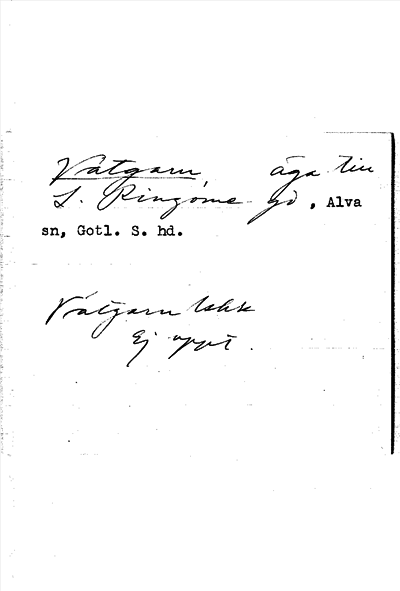 Vätgarn, äga till
L. Ringome gd, Alva
sn, Gotl. S. hd.
Vätgarn
Ej uppt.